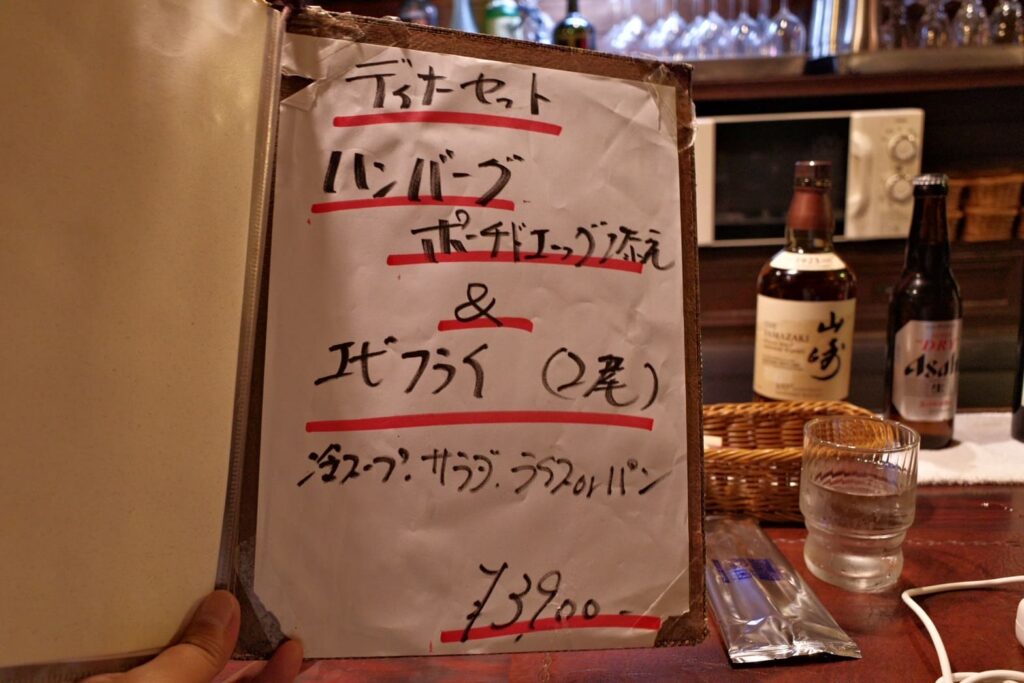 ディナーセット
ハンバーグ
ポーチドエッグ添え
&
エビフライ (2尾)
冷スープ. サラダ. ライスorパン
¥3,900-
THE
YAMAZAKI
山崎
DRY
Asahi